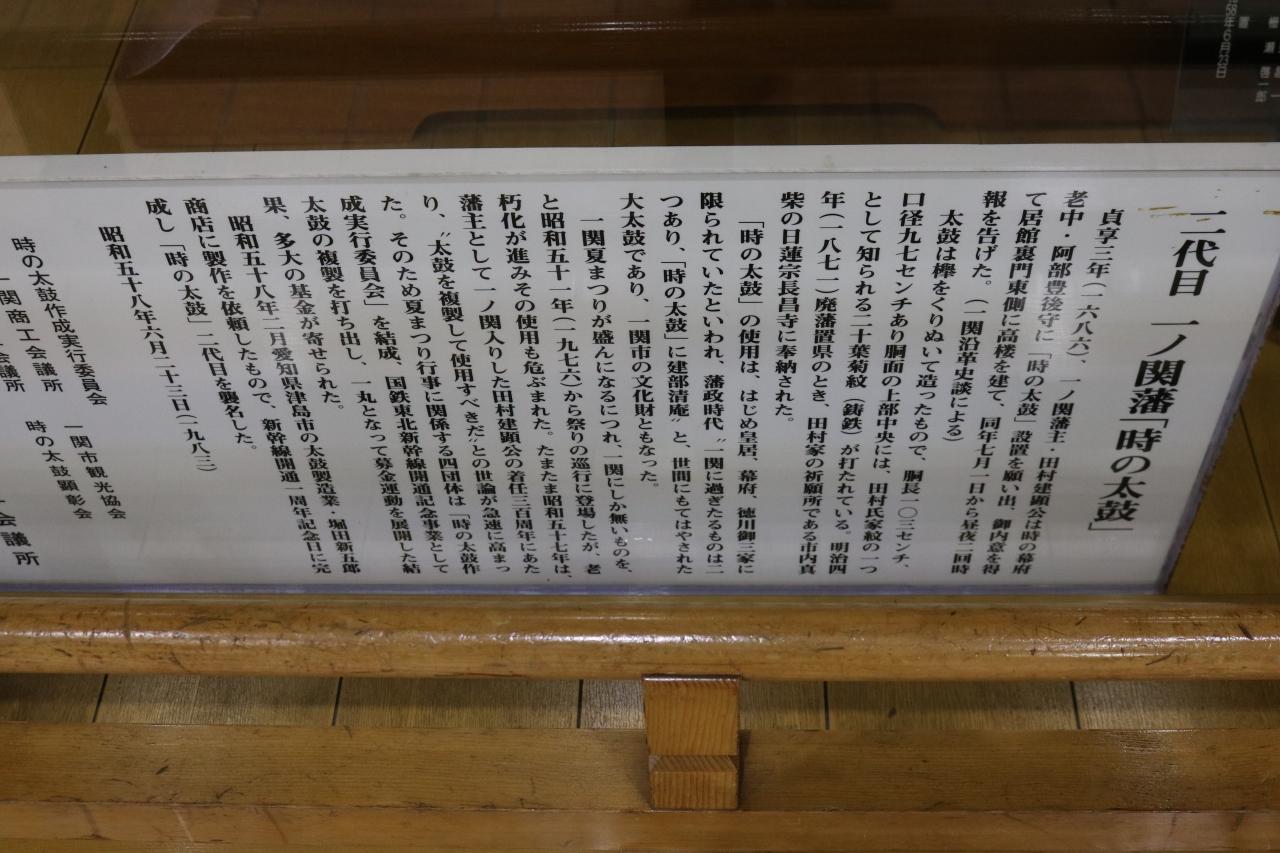 二代目 一ノ関藩「時の太鼓」
貞享三年(一六八六)、一ノ関藩主・田村建顕公は時の幕府
老中・阿部豊後守に「時の太鼓」設置を願い出、御内意を得
て居館裏門東側に高楼を建て、同年七月一日から昼夜二回時
報を告げた。(一関沿革史談による)
太鼓は欅をくりぬいて造ったもので、胴長一〇三センチ、
口径九七センチあり胴面の上部中央には、田村氏家紋の一つ
として知られる二十葉菊紋(鋳鉄)が打たれている。明治四
年(一八七一)廃藩置県のとき、田村家の祈願所である市内真
柴の日蓮宗長昌寺に奉納された。
「時の太鼓」の使用は、はじめ皇居、幕府、徳川御三家に
限られていたといわれ、藩政時代〝一関に過ぎたるものは二
つあり、「時の太鼓」に建部清庵〟と、世間にもてはやされた
大太鼓であり、一関市の文化財ともなった。
一関夏まつりが盛んになるにつれ、一関にしか無いものを、
と昭和五十一年(一九七六)から祭りの巡行に登場したが、老
朽化が進みその使用も危ぶまれた。たまたま昭和五十七年は、
藩主として一ノ関入りした田村建顕公の着任三百周年にあた
り、〝太鼓を複製して使用すべきだ〟との世論が急速に高まっ
た。そのため夏まつり行事に関係する四団体は「時の太鼓作
成実行委員会」を結成、国鉄東北新幹線開通記念事業として
太鼓の複製を打ち出し、一丸となって募金運動を展開した結
果、多大の基金が寄せられた。
昭和五十八年二月愛知県津島市の太鼓製造業・堀田新五郎
商店に製作を依頼したもので、新幹線開通一周年記念日に完
成し「時の太鼓」二代目を襲名した。
昭和五十八年六月二十三日(一九八三)
時の太鼓作成実行委員会
一関商工会議所 一関市観光協会
会議所 時の太鼓顕彰会
会議所
58年6月23日